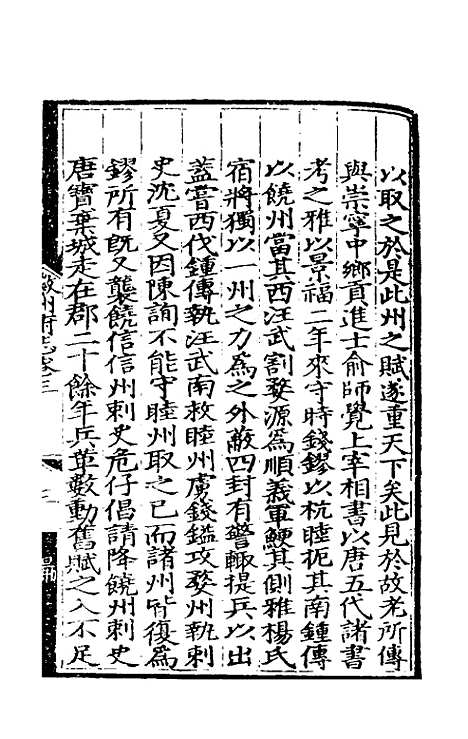 以取之於是此州之賦遂重天下矣此見於故老所傳
與崇寧中鄉貢進士俞師覺上宰相書以唐五代諸書
考之雅以景福二年來守時錢鏐以杭睦扼其南鍾傳
以饒州當其西汪武割婺源為順義軍鯁其側雅楊氏
宿將獨以一州之力為之外蔽四封有警輙提兵以出
蓋嘗西伐鍾傳執汪武南救睦州虜錢鎰攻婺州執刺
史沈夏又因陳詢不能守睦州取之已而諸州皆復為
鏐所有既又襲饒信信州刺史危仔倡請降饒州刺史
唐寶棄城走在郡二十餘年兵革數動舊賦之入不足
州府志卷三
三